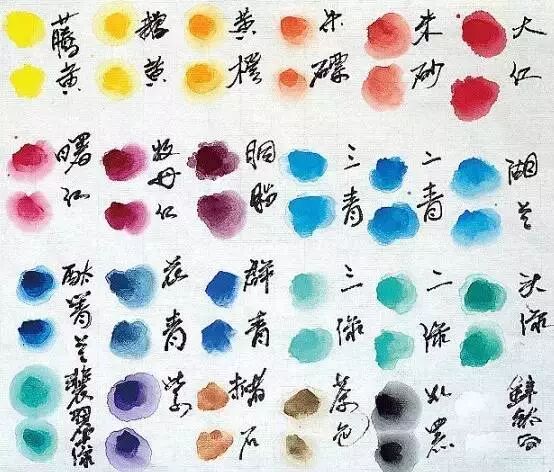 藤黄
橘黄
黄橙
朱磦
朱砂
大红
曙红
牡丹红
胭脂
三青
二青
湖兰
酞菁兰
花青
群青
三绿
二绿
头绿
翡翠绿
紫
赭石
茶色
白